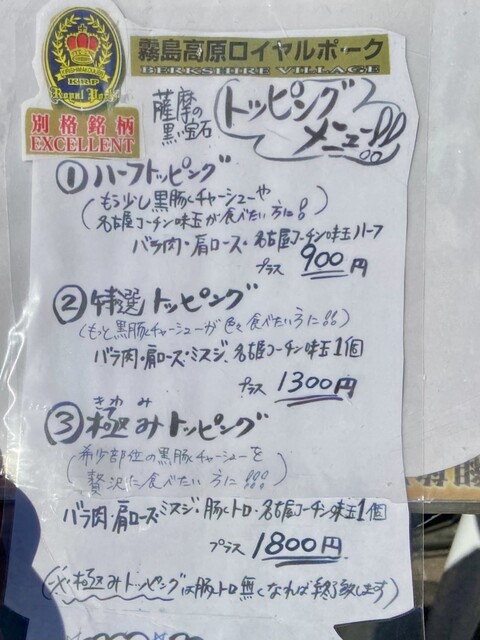 霧島高原ロイヤルポーク
BERKSHIRE VILLAGE
KIRISHIMAKOUGEN
KRP
Royal Pork
別格銘柄
EXCELLENT
薩摩の
黒い宝石
トッピング
メニュー!!
① ハーフトッピング
(もう少し黒豚チャーシューや
名古屋コーチン味玉が食べたい方に!)
バラ肉・肩ロース・名古屋コーチン味玉ハーフ
プラス 900円
② 特選トッピング
(もっと黒豚チャーシューが色々食べたい方に!!)
バラ肉・肩ロース・ミスジ、名古屋コーチン味玉1個
プラス 1300円
きわみ
③ 極みトッピング
(希少部位の黒豚チャーシューを
贅沢に食べたい方に!!!)
バラ肉・肩ロース・ミスジ・豚トロ・名古屋コーチン味玉1個
プラス 1800円
(※極みトッピングは豚トロ無くなれば終了致します)